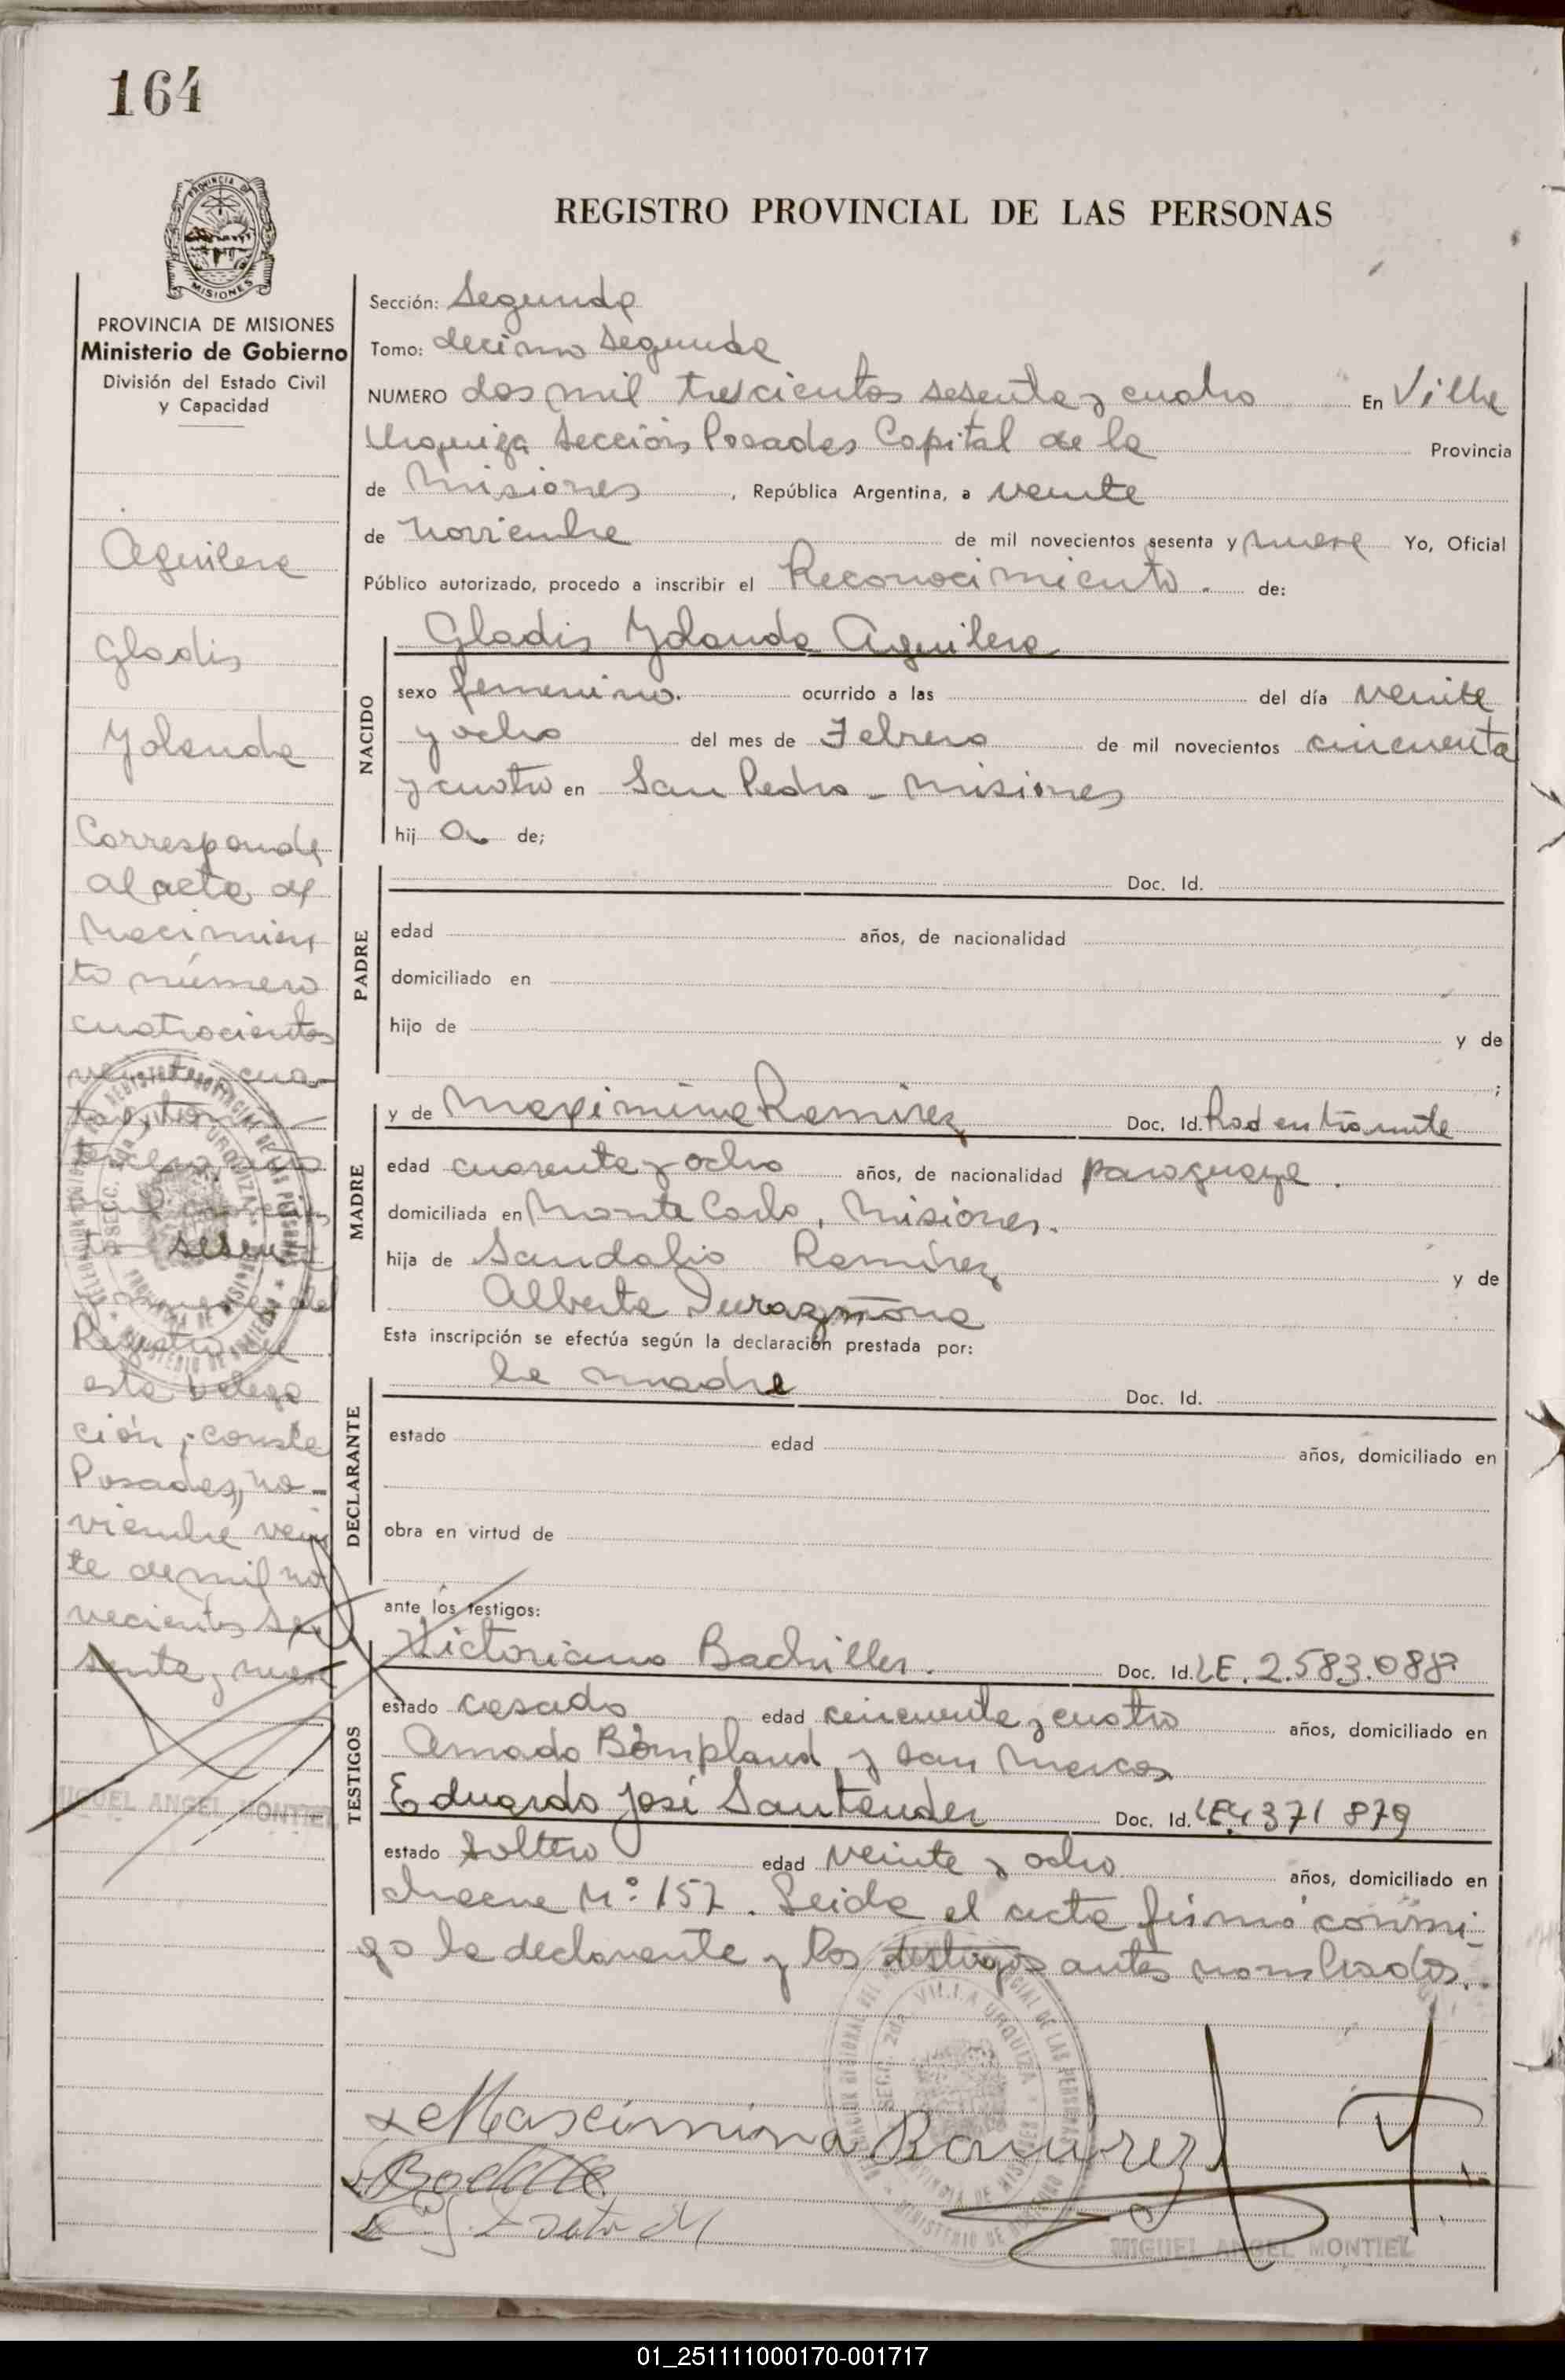 164
PROVINCIA DE MISIONES
PROVINCIA DE MISIONES
Ministerio de Gobierno
División del Estado Civil
y Capacidad
Aguilera
Gladis
Yolanda
Corresponde
al acta de
Nacimien
to número
cuatrocientos
Registro de
esta Delega
ción, conste
Posadas, no-
viembre vein
te de mil no
vecientos se
senta y nueve
MIGUEL ANGEL MONTIEL
REGISTRO PROVINCIAL DE LAS PERSONAS
Sección: Segunda
Tomo: decimo segunda
NUMERO dos mil trescientos sesenta y cuatro En Villa
Urquiza Sección Posadas Capital de la Provincia
de Misiones, República Argentina, a veinte
de Noviembre de mil novecientos sesenta y nueve Yo, Oficial
Público autorizado, procedo a inscribir el Reconocimiento. de:
NACIDO
Gladis Yolanda Aguilera
sexo femenino. ocurrido a las del día veinte
y ocho del mes de Febrero de mil novecientos cincuenta
y cuatro en San Pedro - Misiones
hij a de;
PADRE
Doc. Id.
edad años, de nacionalidad
domiciliado en
hijo de y de
;
MADRE
y de Maximina Ramirez Doc. Id. Rad en trámite
edad cuarenta y ocho años, de nacionalidad paraguaya.
domiciliada en Monte Carlo, Misiones.
hija de Sandalio Ramírez y de
Alberta
Esta inscripción se efectúa según la declaración prestada por:
DECLARANTE
la madre Doc. Id.
estado edad años, domiciliado en
obra en virtud de
ante los testigos:
TESTIGOS
Victoriano Bachiller. Doc. Id. LE. 2.583.088
estado casado edad cincuenta y cuatro años, domiciliado en
Amado Bompland y San Marcos
Eduardo José Santander Doc. Id. LE 4 371 879
estado soltero edad veinte y ocho años, domiciliado en
N.º 157. Leida el acta firmó conmi-
go la declarante y los testigos antes nombrados.
x Mascimina Ramirez
MIGUEL ANGEL MONTIEL
01_251111000170-001717